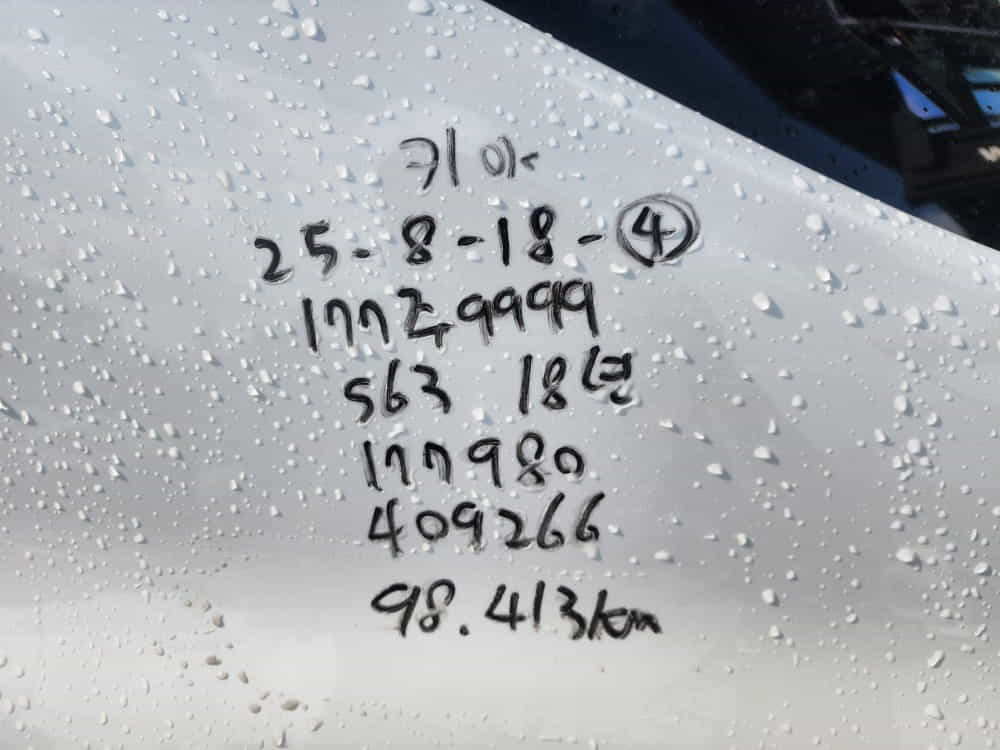 기아
25-8-18-④
177주9999
563 18년
177980
409266
98.413km